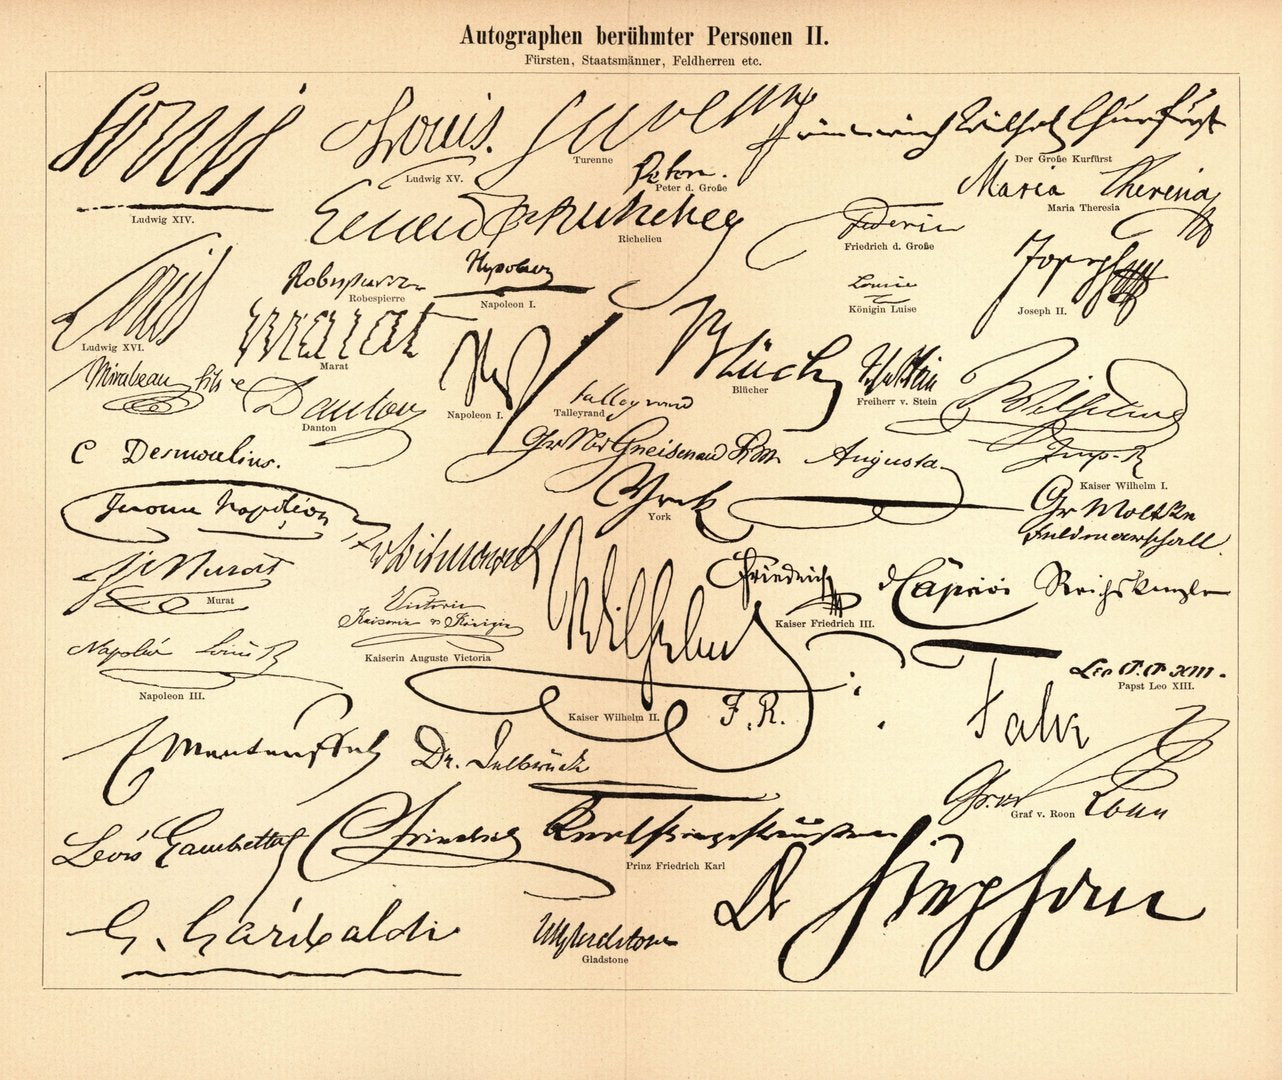 Autographen berühmter Personen II.
Fürsten, Staatsmänner, Feldherren etc.
Louis
Ludwig XIV.
Louis.
Ludwig XV.
Turenne
Turenne
Friderich Wilhelm Churfürst
Der Große Kurfürst
Peter d. Große
Maria Theresia
Maria Theresia
Richelieu
Federic
Friedrich d. Große
Louis
Ludwig XVI.
Robespierre
Robespierre
Napoleon I.
Louise
Königin Luise
Joseph
Joseph II.
marat
Marat
Np
Napoleon I.
Blücher
Talleyrand
Talleyrand
Freiherr v. Stein
Mirabeau fils
Danton
Danton
Wilhelm
Imp. R.
Kaiser Wilhelm I.
C Desmoulins.
Gneisenau
Augusta
York
York
Gr Moltke
Feldmarschall.
Jerome Napoléon
v Bismarck
Murat
Murat
Victoria
Kaiserin u Königin
Kaiserin Auguste Victoria
Friedrich
Kaiser Friedrich III.
Caprivi Reichskanzler
Napoléon Louis B
Napoleon III.
Wilhelm
I. R.
Kaiser Wilhelm II.
Leo P.P. XIII.
Papst Leo XIII.
Falk
E Manteuffel
Dr. Delbrück
Graf v. Roon
Roon
Léon Gambetta
Friedrich Karl
Prinz Friedrich Karl
Dr Stephan
G. Garibaldi
WEGladstone
Gladstone